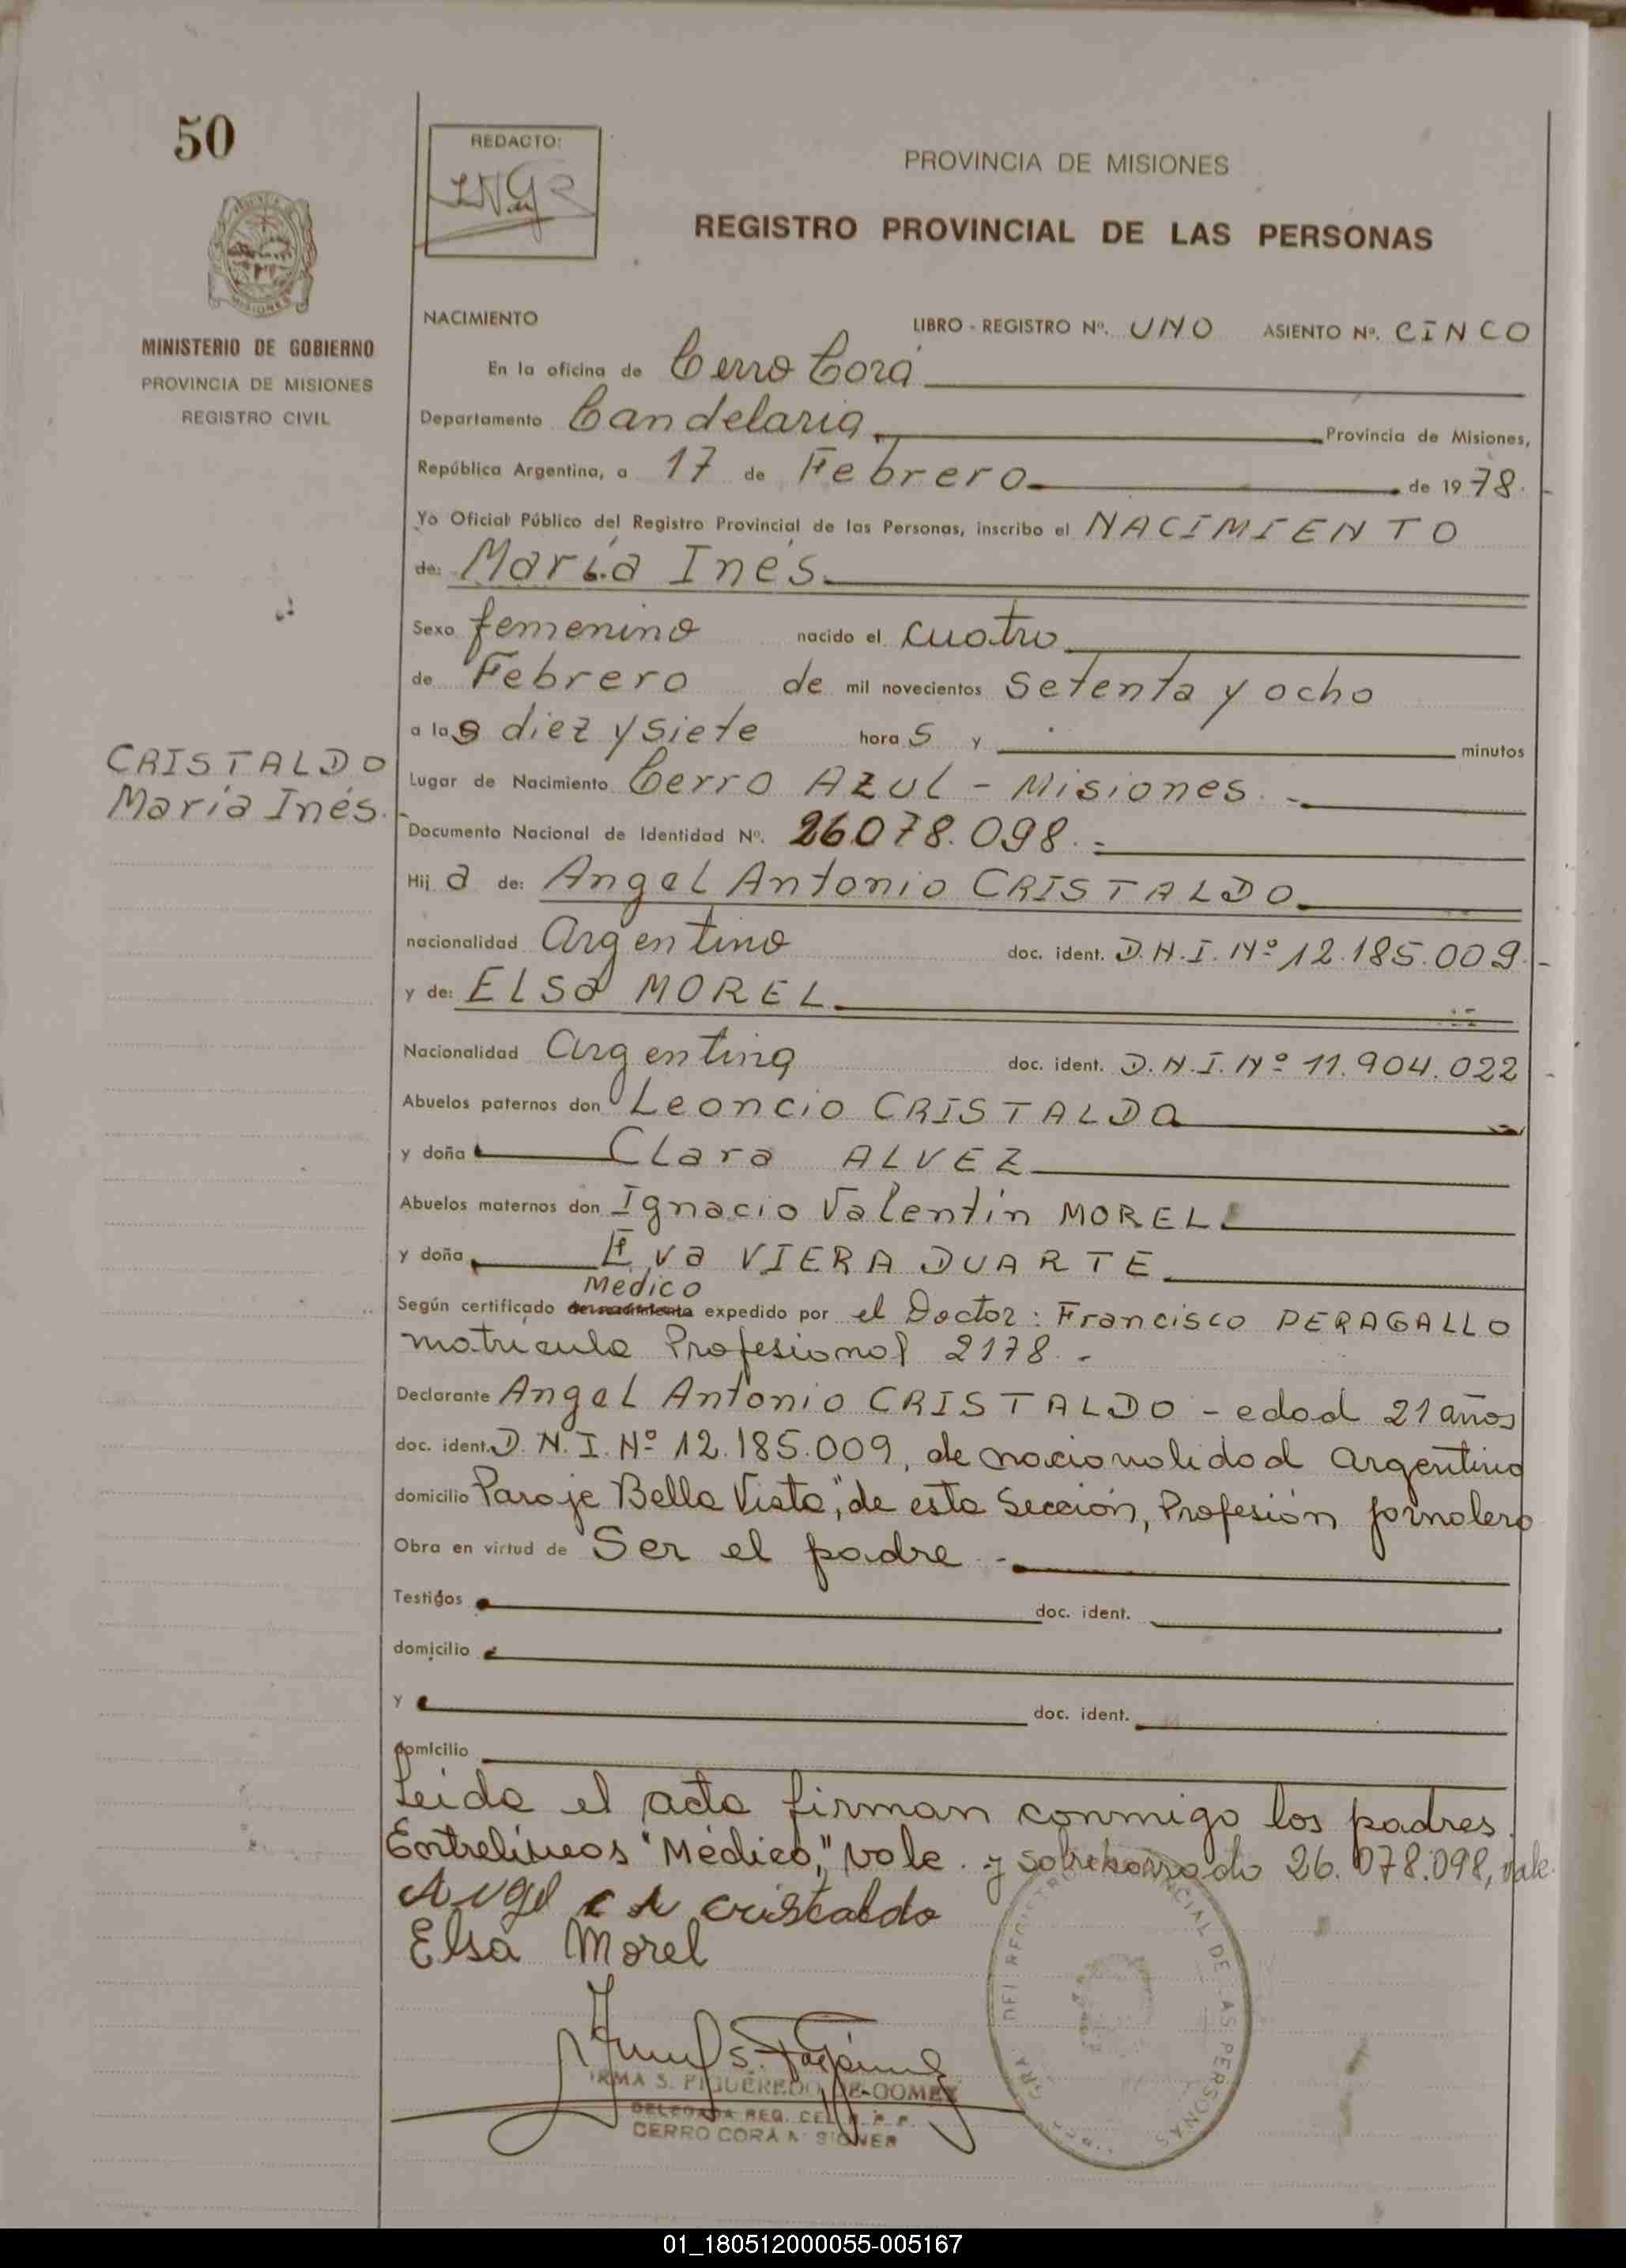 50
REDACTO:
PROVINCIA DE MISIONES
REGISTRO PROVINCIAL DE LAS PERSONAS
MINISTERIO DE GOBIERNO
PROVINCIA DE MISIONES
REGISTRO CIVIL
NACIMIENTO LIBRO - REGISTRO Nº. UNO ASIENTO Nº. CINCO
En la oficina de Cerro Corá
Departamento Candelaria Provincia de Misiones,
República Argentina, a 17 de Febrero de 1978.-
Yo Oficial Público del Registro Provincial de las Personas, inscribo el NACIMIENTO
de: María Inés
Sexo femenino nacido el cuatro
de Febrero de mil novecientos setenta y ocho
a las diez y siete horas y minutos
CRISTALDO
María Inés.-
Lugar de Nacimiento Cerro Azul - Misiones.-
Documento Nacional de Identidad Nº. 26.078.098.-
Hija de: Angel Antonio CRISTALDO
nacionalidad Argentino doc. ident. D.N.I. Nº 12.185.009.-
y de: ELSa MOREL
Nacionalidad Argentina doc. ident. D.N.I. Nº 11.904.022 -
Abuelos paternos don Leoncio CRISTALDO
y doña Clara ALVEZ
Abuelos maternos don Ignacio Valentín MOREL
y doña Eva VIERA DUARTE
Medico
Según certificado de nacimiento expedido por el Doctor: Francisco PERAGALLO
matricula Profesional 2178.-
Declarante Angel Antonio CRISTALDO - edad 21 años
doc. ident. D.N.I. Nº 12.185.009, de nacionalidad Argentino
domicilio Paraje Bella Vista", de esta Sección, Profesión jornalero
Obra en virtud de Ser el padre.-
Testigos doc. ident.
domicilio
y doc. ident.
domicilio
Leida el acta firman conmigo los padres.
Entrelineas "Médico," vale. y sobreborrado 26.078.098, vale.
Angel A cristaldo
Elsa Morel
IRMA S. FIGUEREDO DE GOMEZ
DELEGADA REG. CEL R. P. P.
CERRO CORA MISIONES
DEL REGISTRO PROVINCIAL DE LAS PERSONAS
01_180512000055-005167